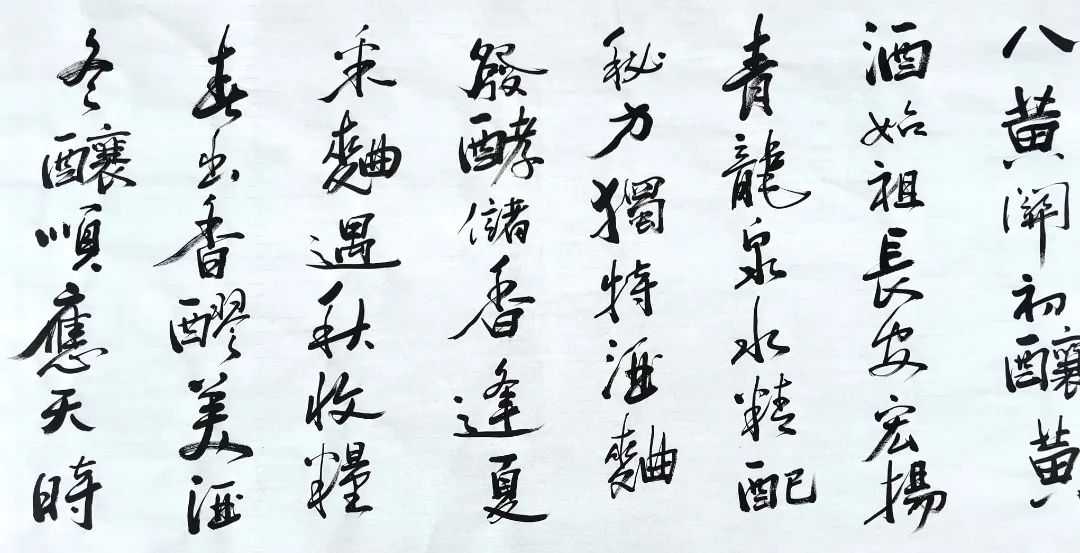 八黄開初釀黄
酒始祖長安宏揚
青龍泉水精配
秘方獨特酒麯
發酵儲香逢夏
采麯遇秋收糧
春出香醪美酒
冬釀順應天時